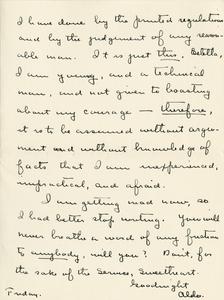 I have done by the printed regulations
and by the judgement of any reason-
able man. It is just this. Estella,
I am young, and a technical
man, and not given to boasting
about my courage — therefore,
it is to be assumed without argu-
ment and without knowledge of
facts that I am inexperienced,
impractical, and afraid.
I am getting mad now, so
I had better stop writing. You will
never breathe a word of my friction
to anybody, will you? Don't, for
the sake of the Service, Sweetheart.
Goodnight
Aldo.
Friday.